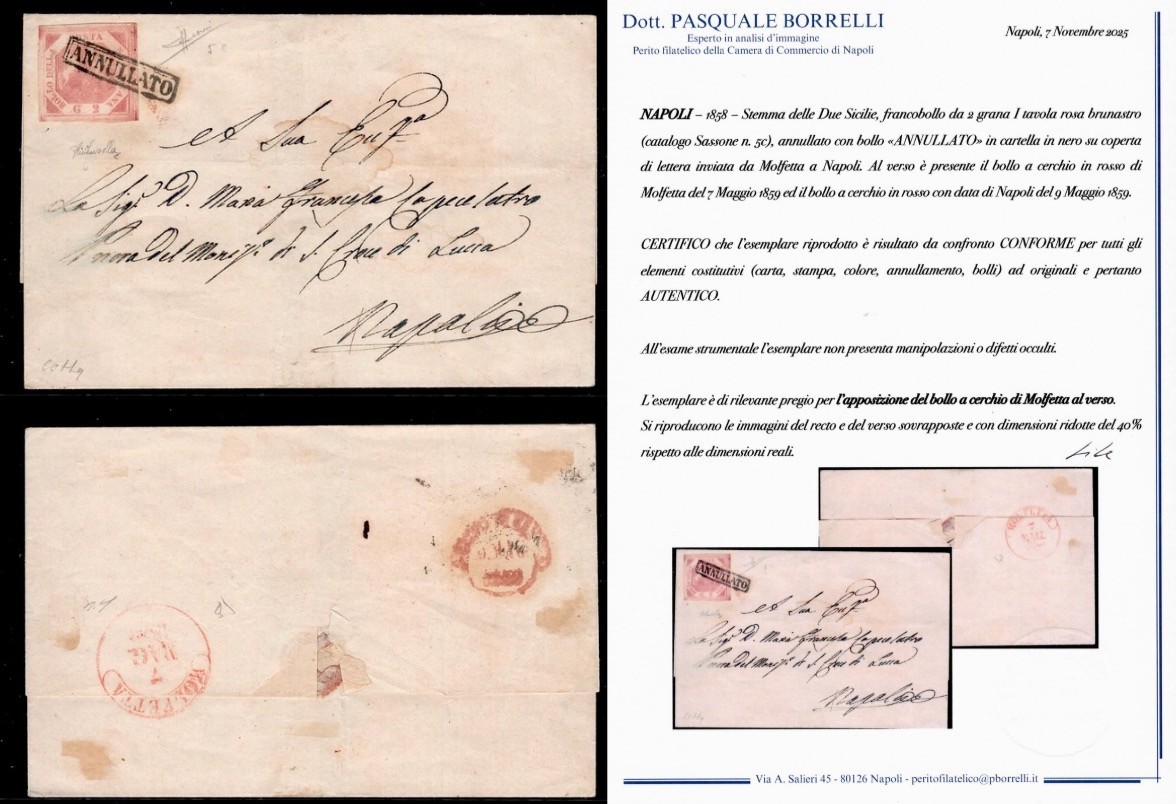 POSTA
BOLLO DELLA
G 2
ANNULLATO
A Sua Ecc.za
La Sig.a D. Maria Francesca Capecelatro
di S. Croce di Lucca
Napoli
MOLFETTA
7
MAG
Dott. PASQUALE BORRELLI
Esperto in analisi d'immagine
Perito filatelico della Camera di Commercio di Napoli
Napoli, 7 Novembre 2025
NAPOLI – 1858 – Stemma delle Due Sicilie, francobollo da 2 grana I tavola rosa brunastro
(catalogo Sassone n. 5c), annullato con bollo «ANNULLATO» in cartella in nero su coperta
di lettera inviata da Molfetta a Napoli. Al verso è presente il bollo a cerchio in rosso di
Molfetta del 7 Maggio 1859 ed il bollo a cerchio in rosso con data di Napoli del 9 Maggio 1859.
CERTIFICO che l'esemplare riprodotto è risultato da confronto CONFORME per tutti gli
elementi costitutivi (carta, stampa, colore, annullamento, bolli) ad originali e pertanto
AUTENTICO.
All'esame strumentale l'esemplare non presenta manipolazioni o difetti occulti.
L'esemplare è di rilevante pregio per l'apposizione del bollo a cerchio di Molfetta al verso.
Si riproducono le immagini del recto e del verso sovrapposte e con dimensioni ridotte del 40%
rispetto alle dimensioni reali.
MOLFETTA
7
MAG
ANNULLATO
A Sua Ecc.za
La Sig.a D. Maria Francesca Capecelatro
di S. Croce di Lucca
Napoli
Via A. Salieri 45 - 80126 Napoli - peritofilatelico@pborrelli.it